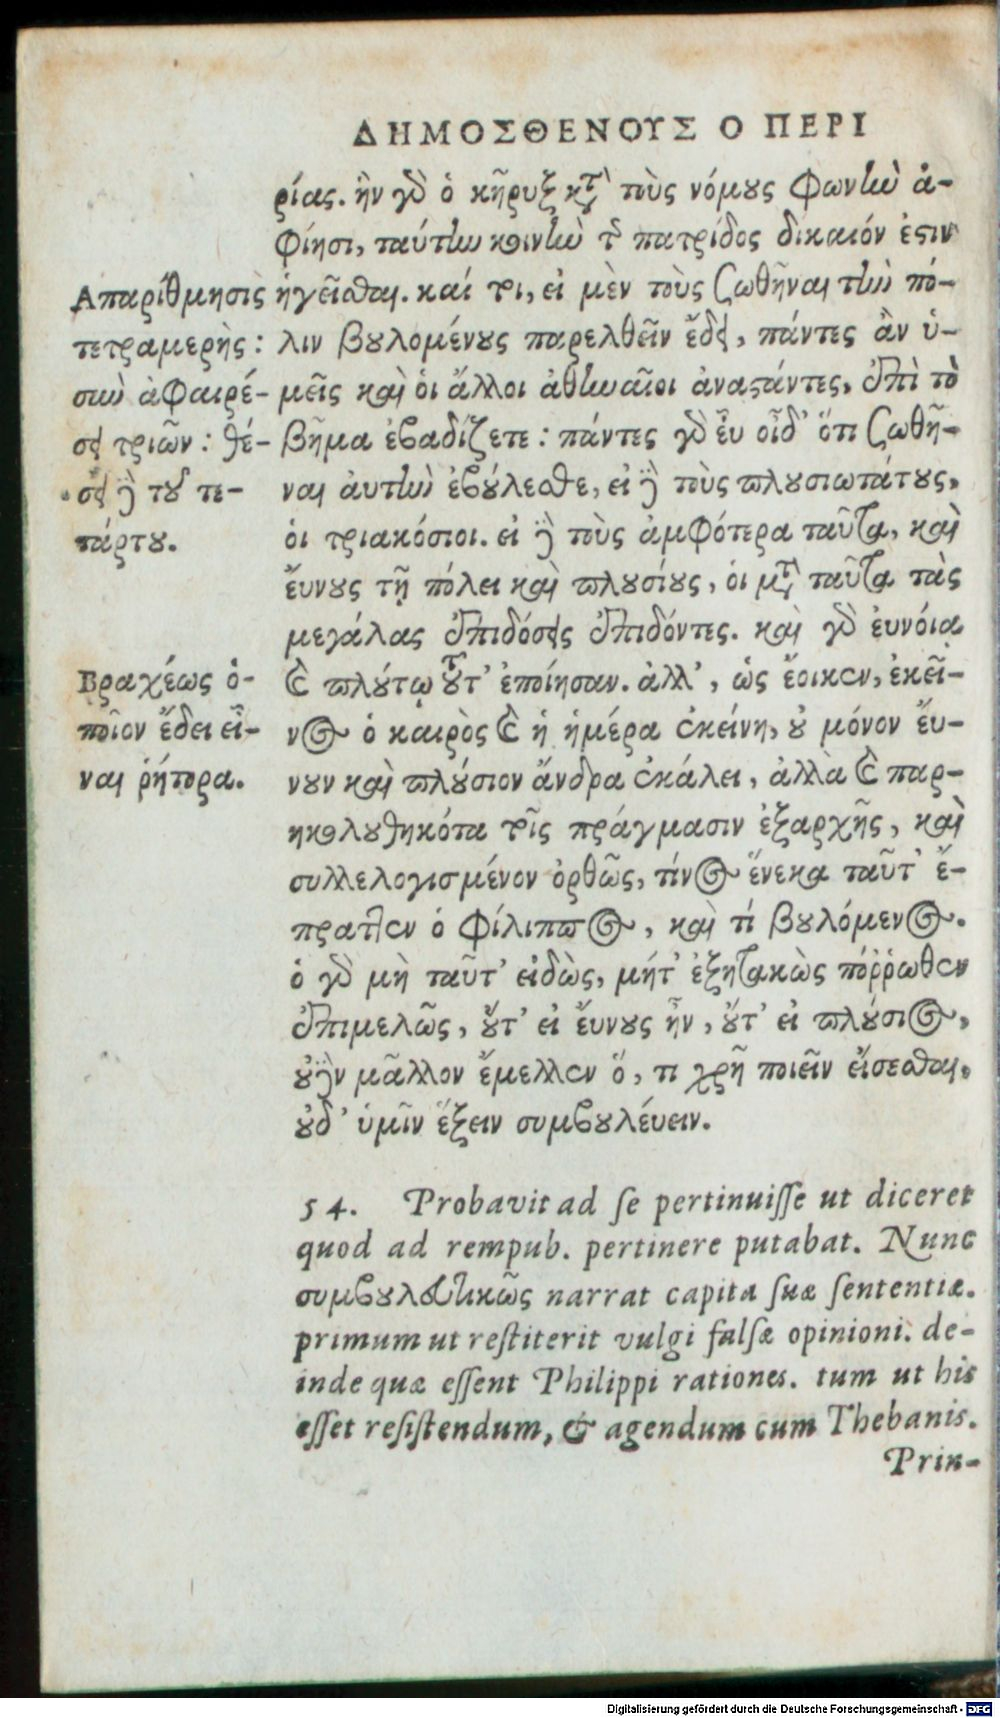 ΔΗΜΟΣΘΕΝΟΥΣ Ο ΠΕΡΙ
ρίας. ἣν γὸ ὁ κῆρυξ κτ̀ τοὺς νόμȣς φωνἰὼ ἀ-
φίησι, ταύτἰω κοινἰὼ τ̃ πατρίδος δικαιόν ἐστιν
ἡγεῖσθαι. καί τοι, εἰ μὲν τοὺς σωθῆναι τἰὼ πό-
λιν βȣλομένȣς παρελθεῖν ἔδει, πάντες ἂν ὑ-
μεῖς καὶ ὁι ἄλλοι ἀθἰωαῖοι ἀναστάντες, ἐπὶ τὸ
βῆμα ἐβαδίζετε : πάντες γὸ ἐυ οἶδ’ ὅτι σωθῆ-
ναι ἀυτἰὼ ἐβȣ́λεσθε, εἰ ὃ τοὺς πλȣσιωτάτȣς,
ὁι τριακόσιοι. εἰ ὃ τοὺς ἀμφότερα ταῦτα, καὶ
ἔυνȣς τῇ πόλει καὶ πλȣσίȣς, ὁι μτ̀ ταῦτα τὰς
μεγάλας ἐπιδόσεις ἐπιδόντες. καὶ γὸ ἐυνόια
καὶ πλȣ́τῳ τȣ̃τ’ ἐποίησαν. ἀλλ’, ὡς ἔοικεν, ἐκεῖ-
νος ὁ καιρὸς καὶ ἡ ἡμέρα ἐκείνη, ȣ̓ μόνον ἔυ-
νȣν καὶ πλȣ́σιον ἄνδρα ἐκάλει, ἀλλὰ καὶ παρ-
ηκολȣθηκότα τοῖς πράγμασιν ἐξαρχῆς, καὶ
συλλελογισμένον ὀρθῶς, τίνος ἕνεκα ταῦτ’ ἔ-
πραττεν ὁ Φίλιππος, καὶ τί βȣλόμενος.
ὁ γὸ μὴ ταῦτ’ εἰδὼς, μήτ’ ἐξητακὼς πόῤῥωθεν
ἐπιμελῶς, ȣ̓́τ’ εἰ ἔυνȣς ἦν, ȣ̓́τ’ εἰ πλȣ́σιος,
ȣ̓δὲν μᾶλλον ἔμελλεν ὅ, τι χρῆ ποιεῖν εἴσεσθαι,
ȣ̓δ’ ὑμῖν ἕξειν συμβȣλέυειν.
Απαρίθμησις
τετραμερὴς :
σιὼ ἀφαιρέ-
σει τριῶν : θέ-
σει ὃ τȣ̃ τε-
τάρτȣ.
Βραχέως ὁ-
ποῖον ἔδει εἶ-
ναι ῥήτορα.
54. Probavit ad se pertinuisse ut diceret
quod ad rempub. pertinere putabat. Nunc
συμβȣλευτικῶς narrat capita suæ sententiæ.
primum ut restiterit vulgi falsæ opinioni. de-
inde quæ essent Philippi rationes. tum ut his
esset resistendum, & agendum cum Thebanis.
Prin-
Digitalisierung gefördert durch die Deutsche Forschungsgemeinschaft - DFG